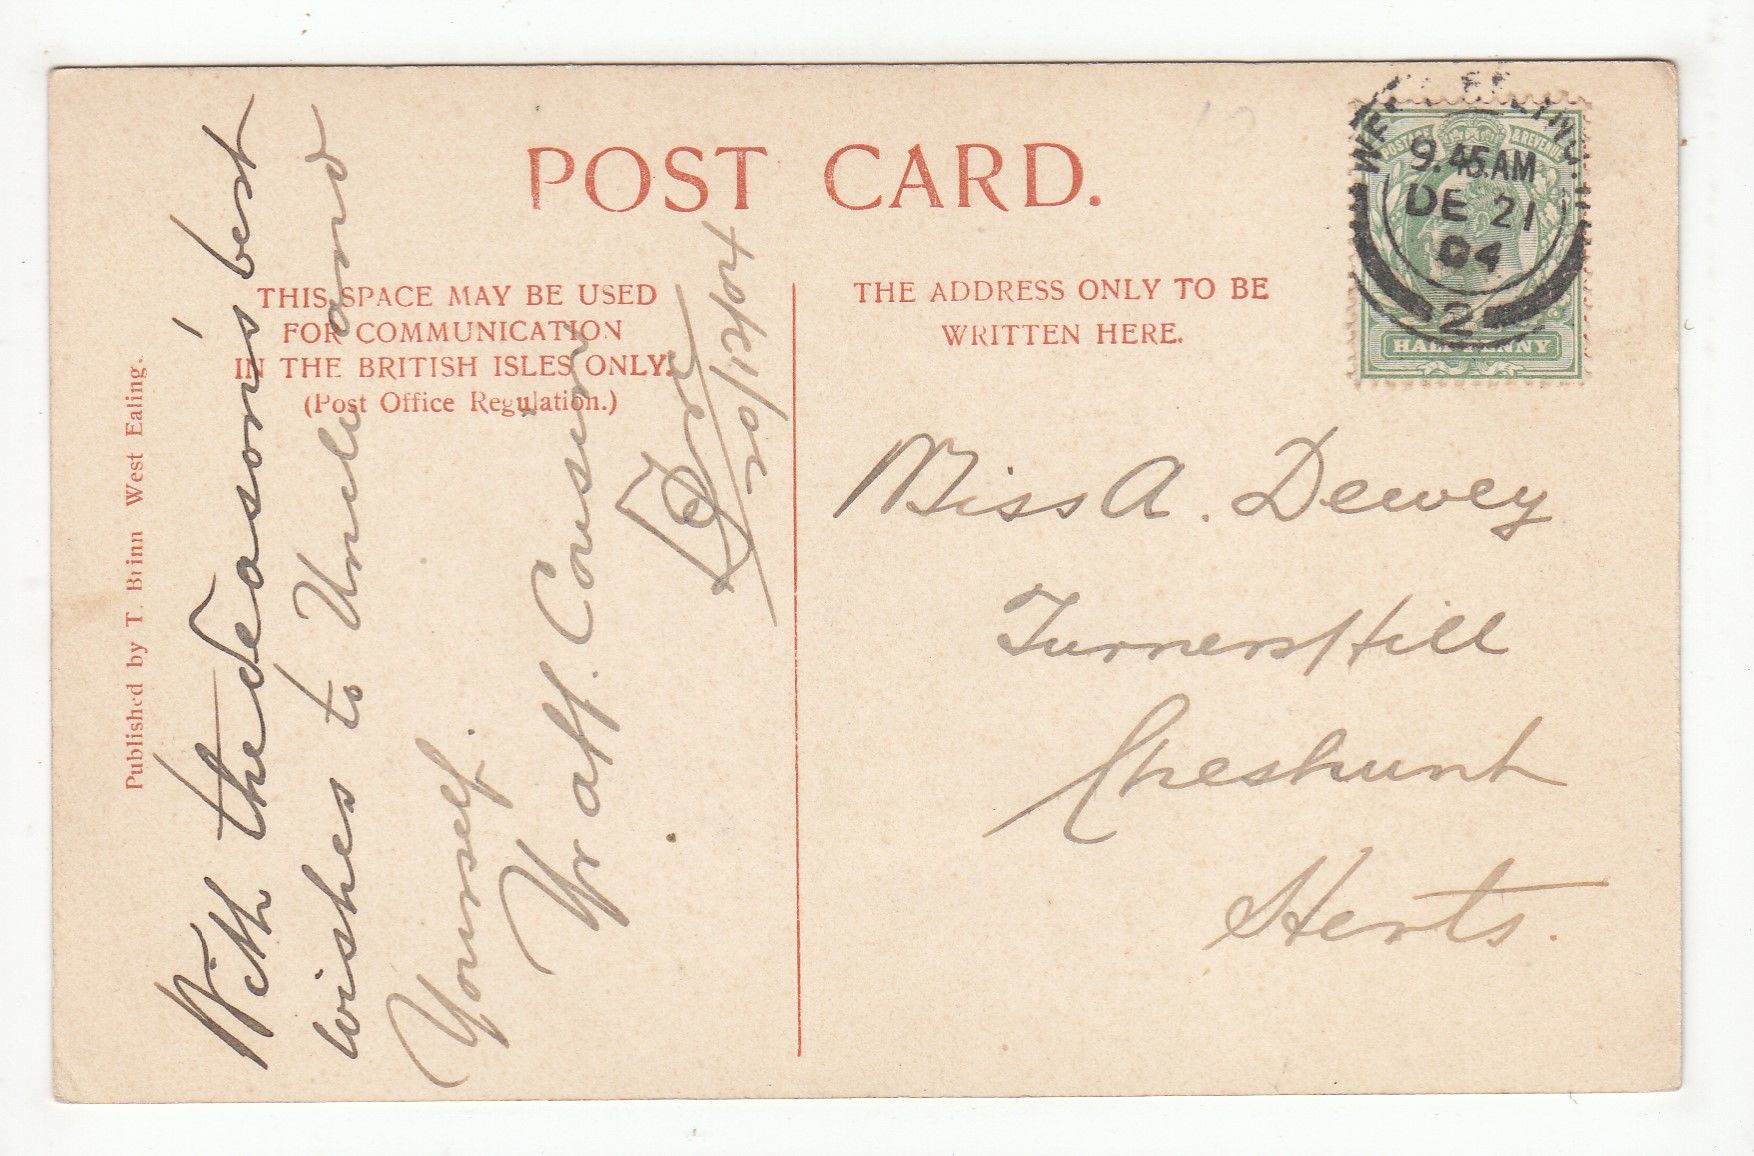 POST CARD.
THIS SPACE MAY BE USED
FOR COMMUNICATION
IN THE BRITISH ISLES ONLY.
(Post Office Regulation.)
THE ADDRESS ONLY TO BE
WRITTEN HERE.
Published by T. Brinn West Ealing.
With the Season's best
wishes to Uncle and
Yourself.
Yr aff. Cousin
20/12/04
Miss A. Dewey
Turners Hill
Cheshunt
Herts.
POSTAGE & REVENUE
HALFPENNY
9.45.AM
DE 21
04
2